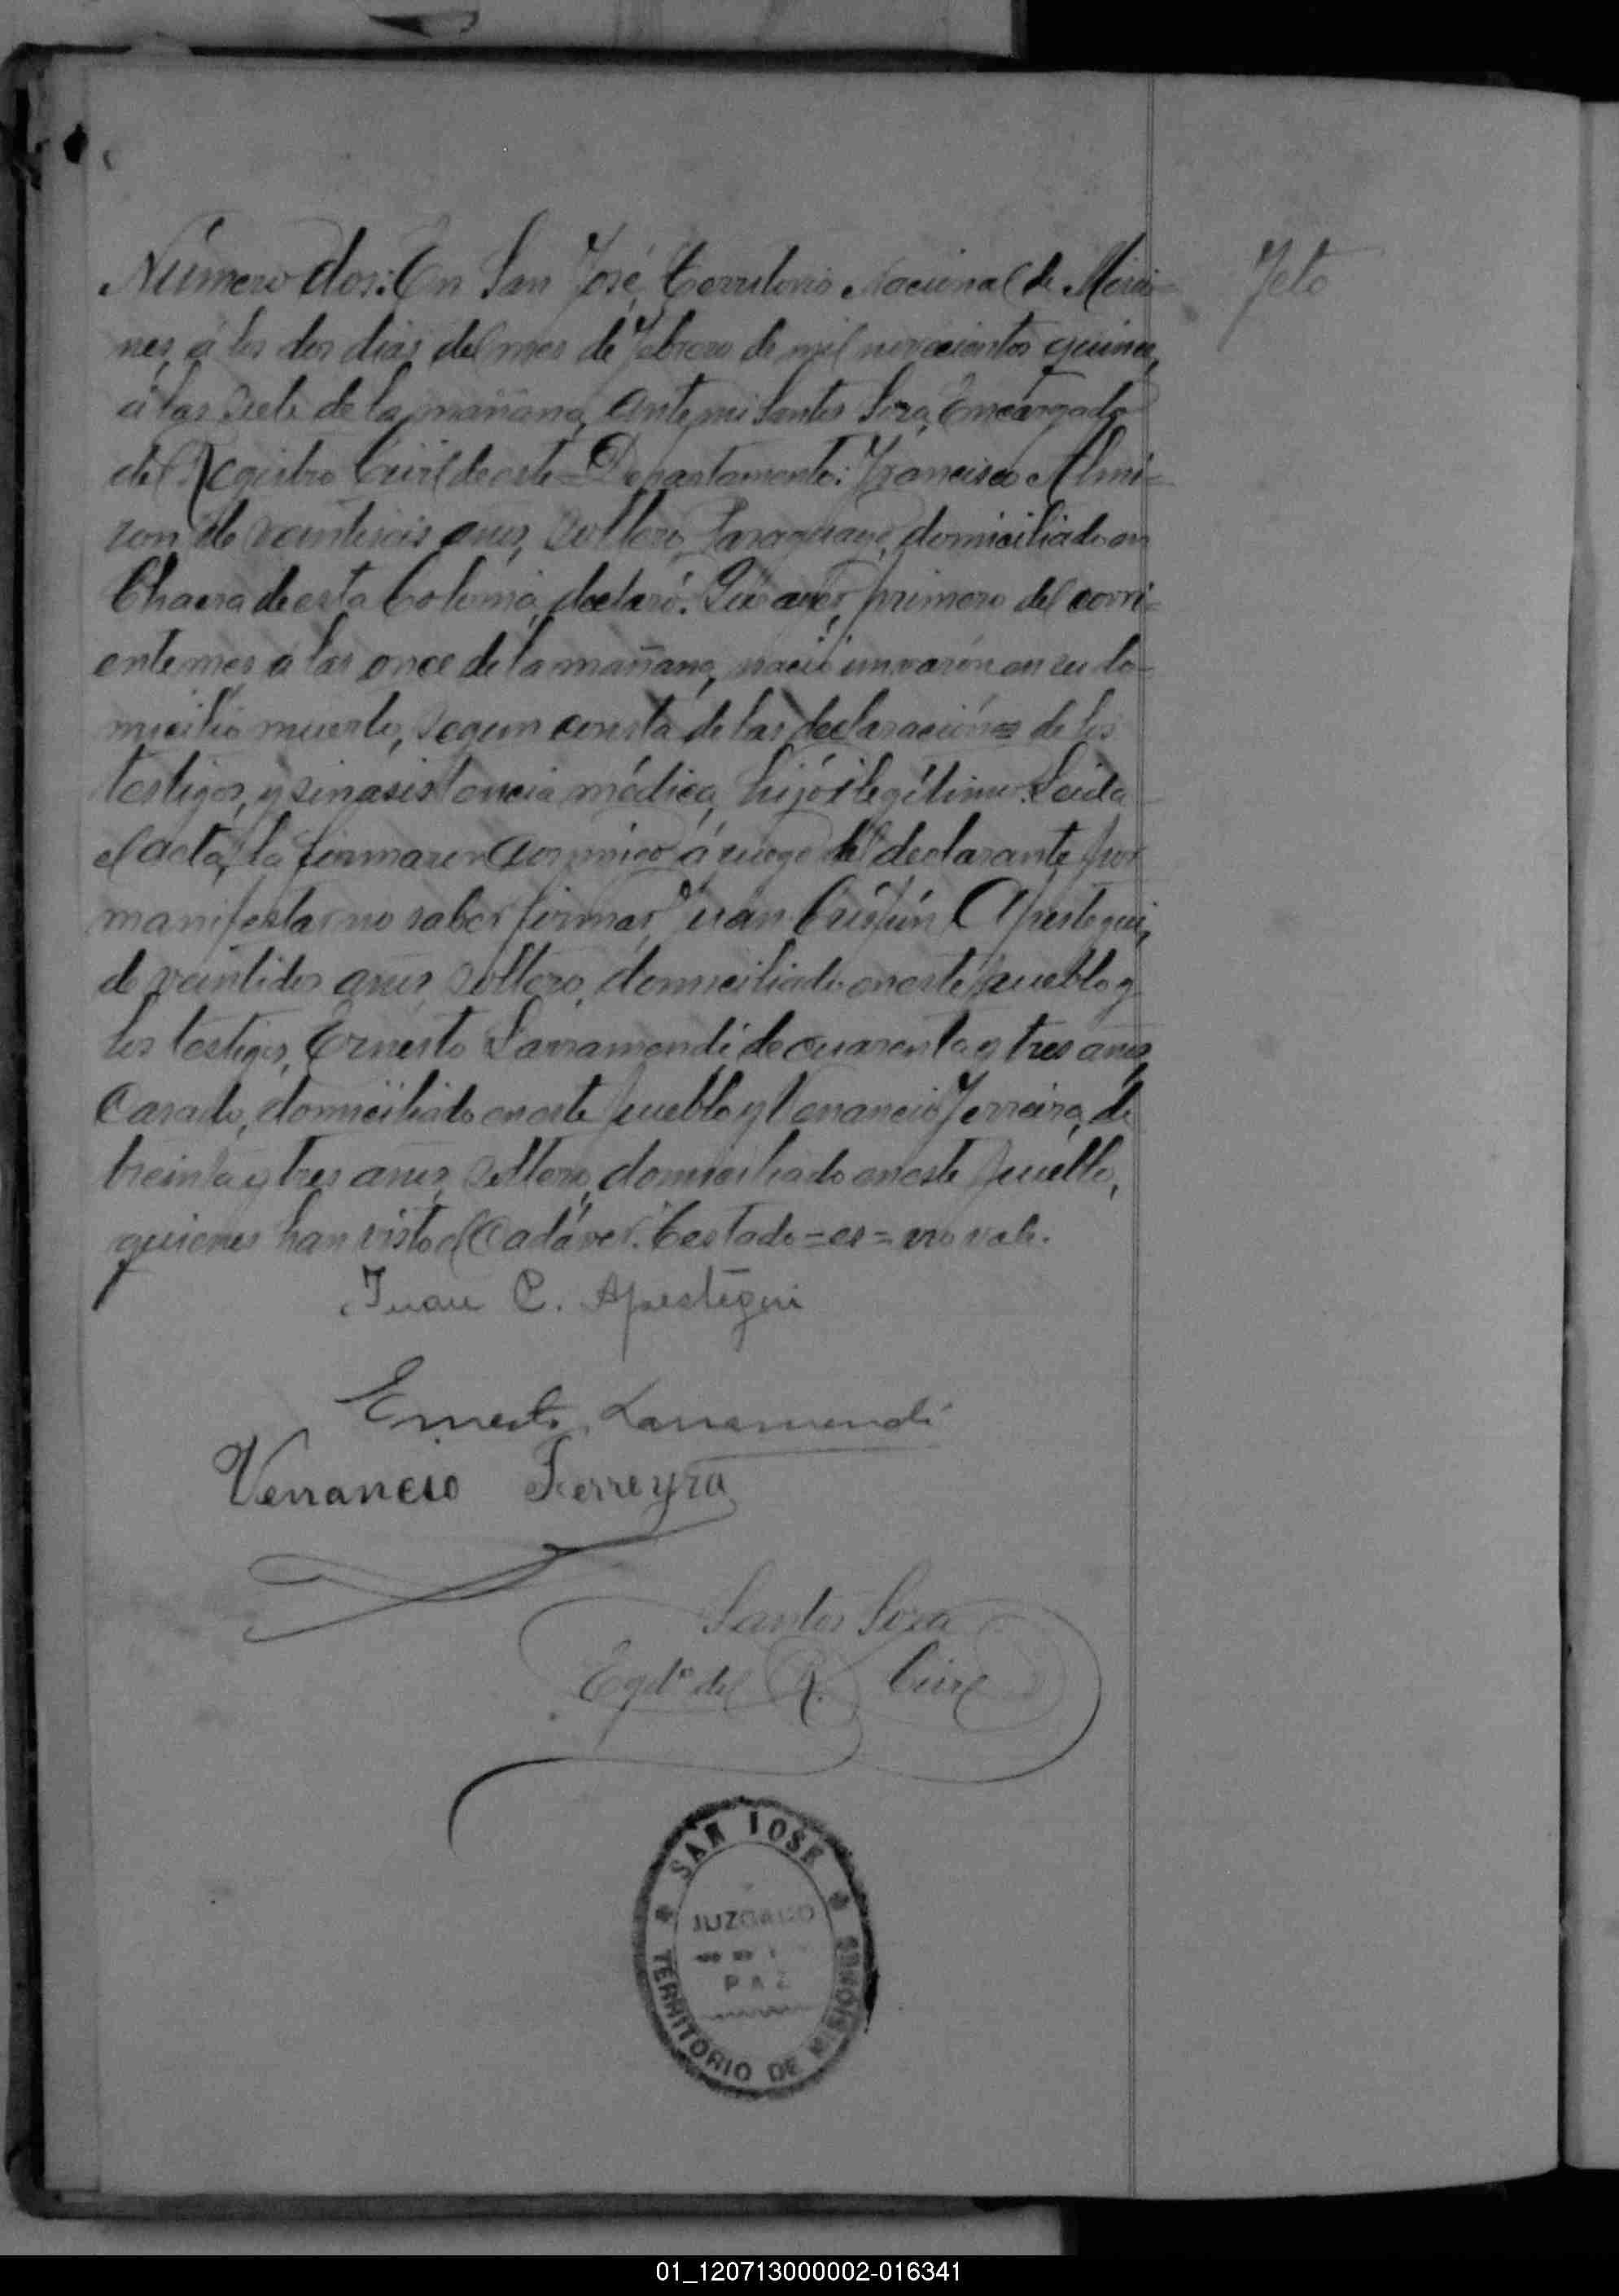 Número dos: En San José, Territorio Nacional de Misio= Feto
nes, á los dos dias del mes de Febrero de mil novecientos quince,
á las siete de la mañana, ante mi Santos Soza, Encargado
del Registro Civil de este = Departamento: Francisco Almi=
ron de veintiseis años, soltero, Paraguayo, domiciliado en
Chacra de esta Colonia, declaró: Que ayer, primero del corri=
ente mes a las once de la mañana, nació un varón en su do=
micilio muerto, segun consta de las declaraciónes de los
testigos, y sin asistencia médica, hijo ilegítimo. Leida
el acta, la firmaron conmigo á ruego del declarante, por
manifestar no saber firmar, Juan Crispín Apestegui,
de veintidos años, soltero, domiciliado en este pueblo y
los testigos, Ernesto Larramendi de cuarenta y tres años,
Casado, domiciliado en este pueblo y Venancio Ferreira, de
treinta y tres años, soltero, domiciliado en este pueblo,
quienes han visto el Cadáver. Testado = es = no vale.
Juan C. Apestégui
Ernesto Larramendi
Venancio Ferreyra
Santos Soza
Egdo del R. Civil
SAN JOSE
JUZGADO
PAZ
TERRITORIO DE MISIONES
01_120713000002-016341